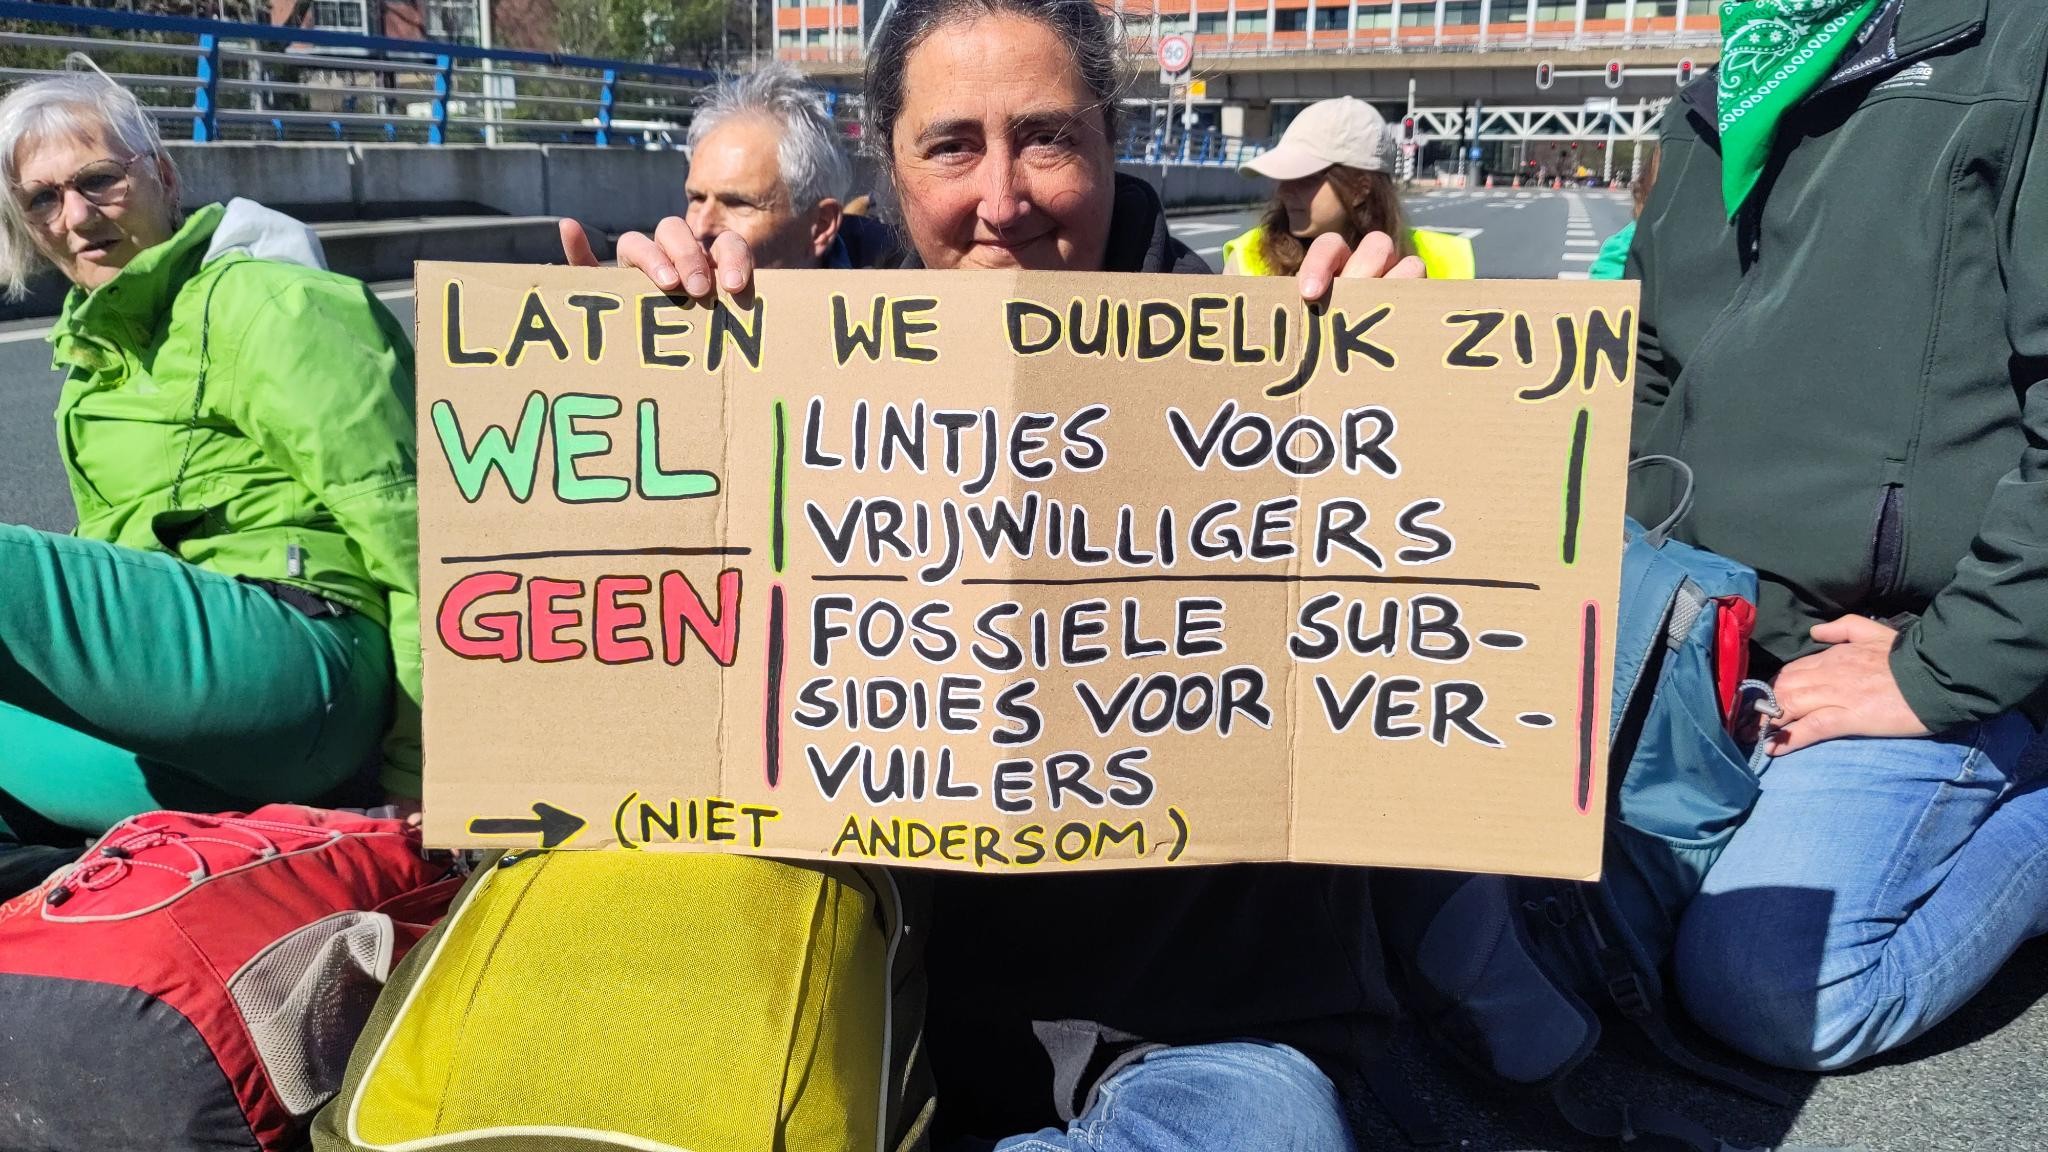 50
LATEN WE DUIDELIJK ZIJN
WEL
LINTJES VOOR
VRIJWILLIGERS
GEEN
FOSSIELE SUB-
SIDIES VOOR VER-
VUILERS
→ (NIET ANDERSOM)